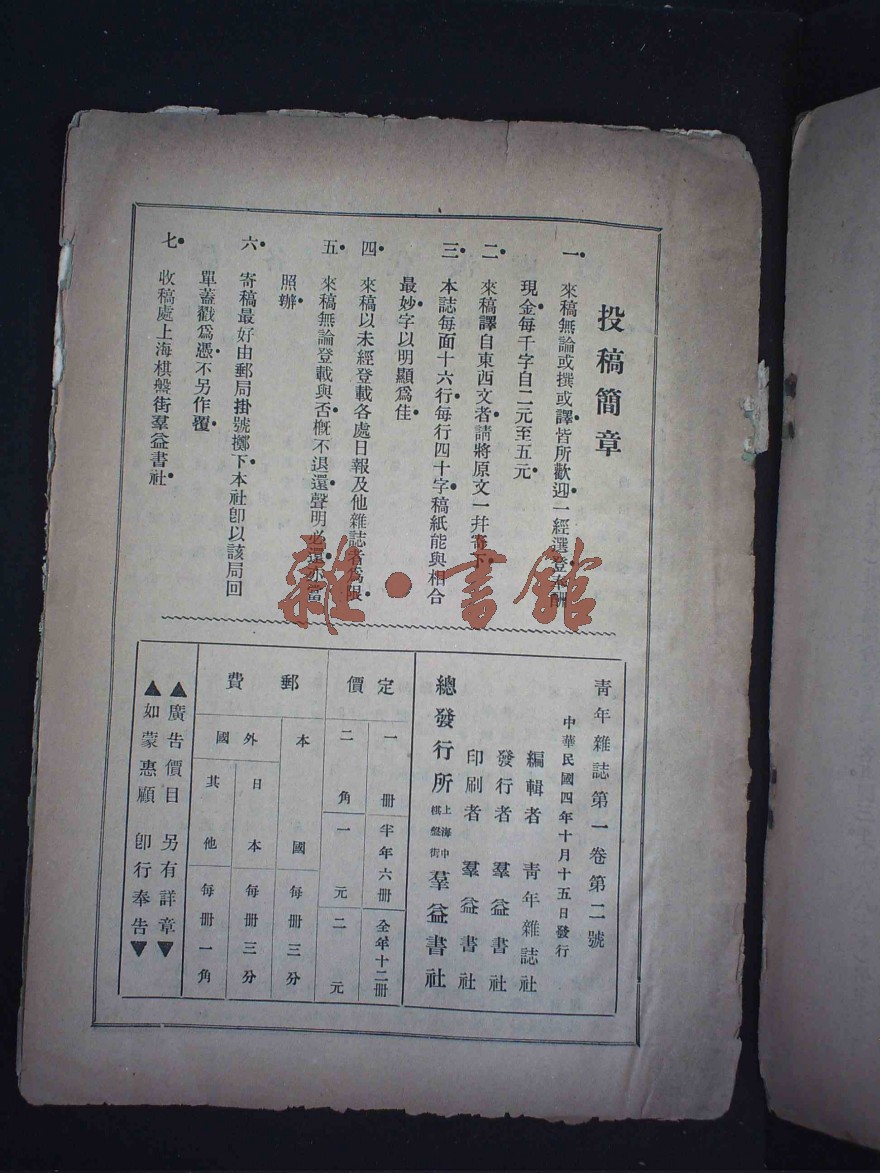 投稿簡章
一•來稿無論或撰或譯•皆所歡迎•一經選登•奉酬
現金•每千字自二元至五元•
二•來稿譯自東西文者•請將原文一幷寄下•
三•本誌每面十六行•每行四十字•稿紙能與相合
最妙•字以明顯爲佳•
四•來稿以未經登載各處日報及他雜誌者爲限•
五•來稿無論登載與否•槪不退還•聲明必還•亦當
照辦•
六•寄稿最好由郵局掛號擲下•本社卽以該局回
單蓋戳爲憑•不另作覆•
七•收稿處上海棋盤街羣益書社•
青年雜誌第一卷第二號
中華民國四年十月十五日發行
編輯者 青年雜誌社
發行者 羣益書社
印刷者 羣益書社
總發行所 上海中棋盤街 羣益書社
定價
一冊 半年六冊 全年十二冊
二角 一元 二元
郵費
本國 每冊三分
外國
日本 每冊三分
其他 每冊一角
▲廣告價目 另有詳章▼
▲如蒙惠顧 卽行奉告▼
雜•書館